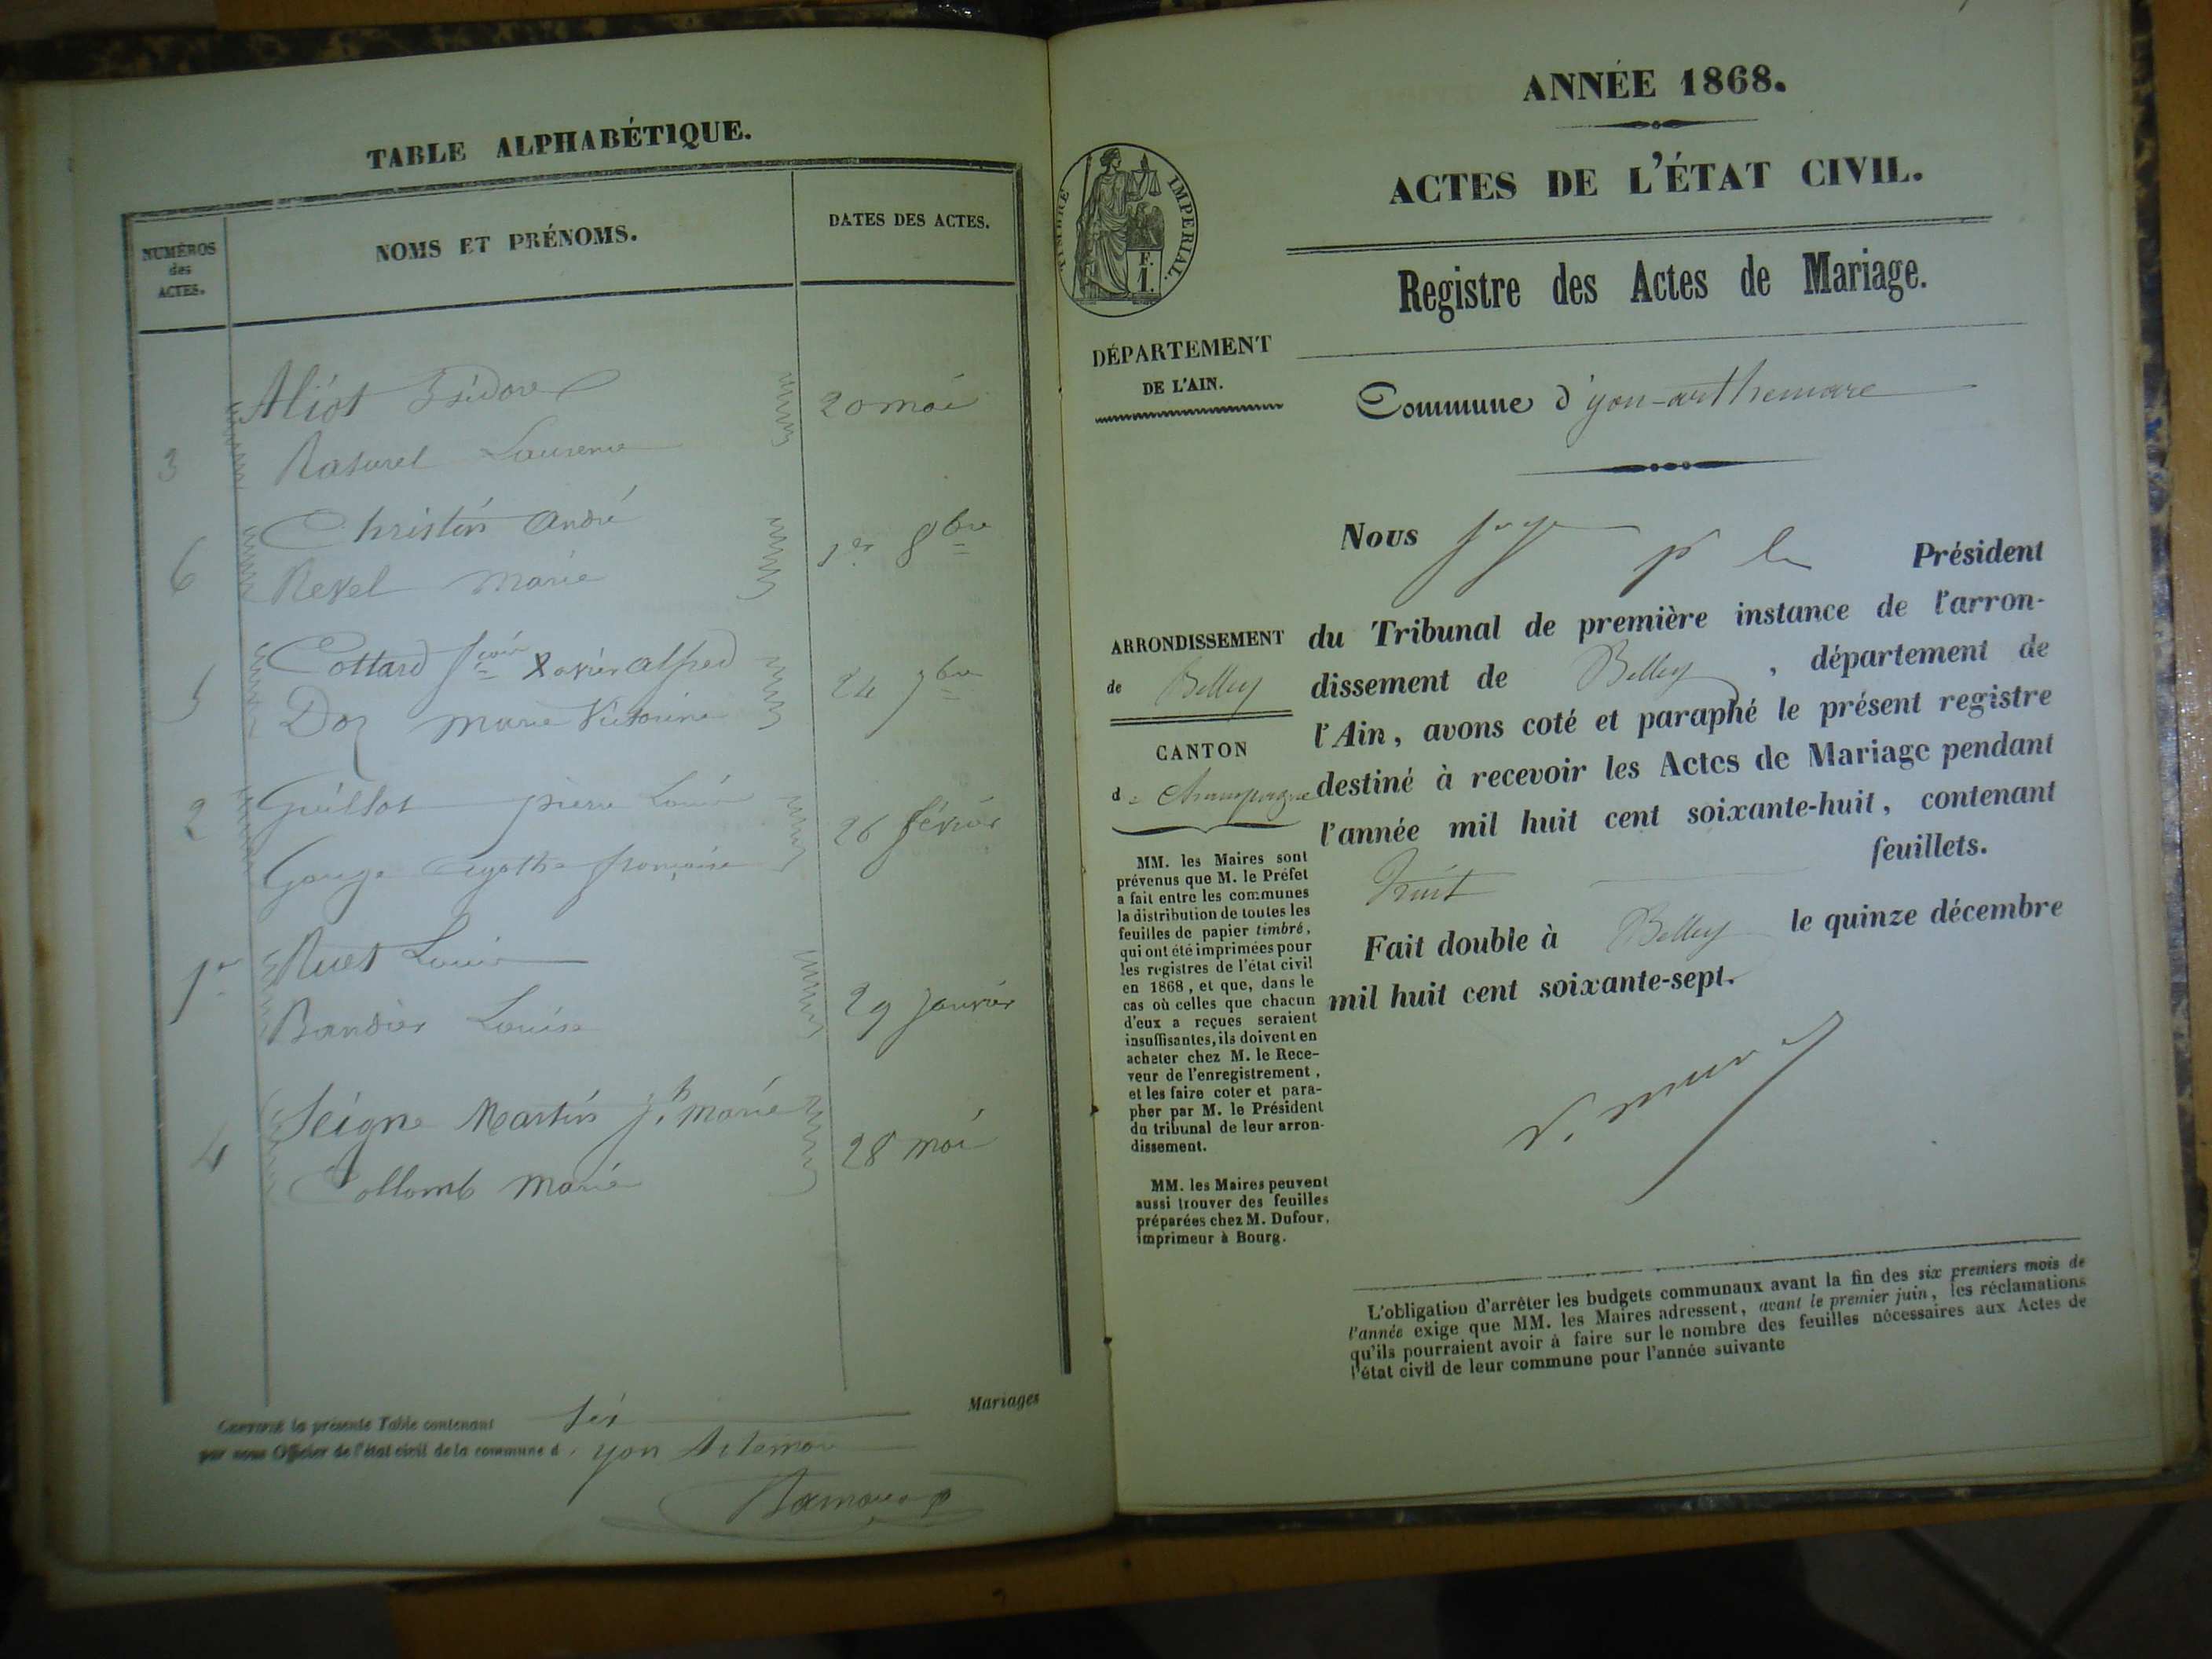 TABLE ALPHABÉTIQUE.
NUMÉROS
des
ACTES.
NOMS ET PRÉNOMS.
DATES DES ACTES.
Aliot Isidore
20 mai
3
Naturel Laurence
Christin André
1er 8bre
6
Revel Marie
Cottard Xavier alfred
24 7bre
5
Marie Victorine
2
Guillot pierre Louis
26 février
agathe françoise
1er
Ruet Louis
29 Janvier
Bandier Louise
Seigne Martin Jh marie
4
28 mai
Collomb Marie
CERTIFIÉ la présente Table contenant Six Mariages
par nous Officier de l'état civil de la commune d'yon Artemare
ANNÉE 1868.
ACTES DE L'ÉTAT CIVIL.
TIMBRE IMPERIAL.
F.
1.
Registre des Actes de Mariage.
DÉPARTEMENT
DE L'AIN.
Commune d'yon-arthemare
Nous juge pr le Président
ARRONDISSEMENT
de Belley
CANTON
de Champagne
du Tribunal de première instance de l'arron-
dissement de Belley, département de
l'Ain, avons coté et paraphé le présent registre
destiné à recevoir les Actes de Mariage pendant
l'année mil huit cent soixante-huit, contenant
huit feuillets.
Fait double à Belley le quinze décembre
mil huit cent soixante-sept.
MM. les Maires sont
prévenus que M. le Préfet
a fait entre les communes
la distribution de toutes les
feuilles de papier timbré,
qui ont été imprimées pour
les registres de l'état civil
en 1868, et que, dans le
cas où celles que chacun
d'eux a reçues seraient
insuffisantes, ils doivent en
acheter chez M. le Rece-
veur de l'enregistrement,
et les faire coter et para-
pher par M. le Président
du tribunal de leur arron-
dissement.
MM. les Maires peuvent
aussi trouver des feuilles
préparées chez M. Dufour,
imprimeur à Bourg.
L'obligation d'arrêter les budgets communaux avant la fin des six premiers mois de
l'année exige que MM. les Maires adressent, avant le premier juin, les réclamations
qu'ils pourraient avoir à faire sur le nombre des feuilles nécessaires aux Actes de
l'état civil de leur commune pour l'année suivante